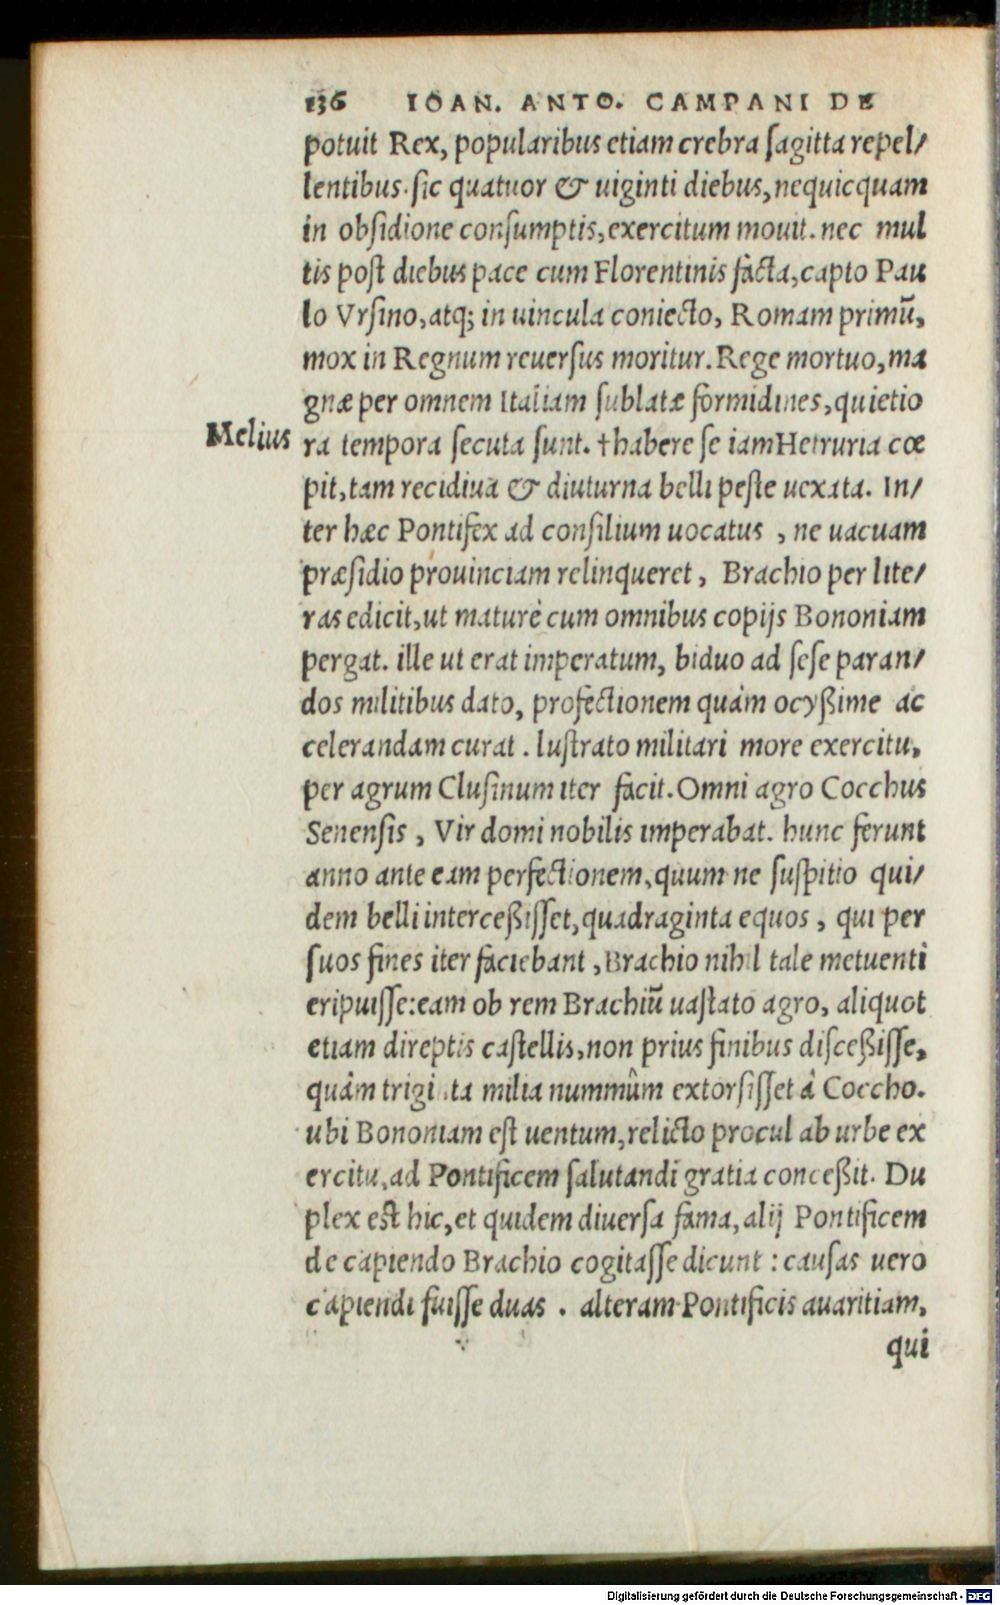 136 IOAN. ANTO. CAMPANI DE
potuit Rex, popularibus etiam crebra ſagitta repel/
lentibus. ſic quatuor & uiginti diebus, nequicquam
in obſidione conſumptis, exercitum mouit. nec mul
tis poſt diebus pace cum Florentinis facta, capto Pau
lo Vrſino, atq; in uincula coniecto, Romam primū,
mox in Regnum reuerſus moritur. Rege mortuo, ma
gnæ per omnem Italiam ſublatæ formidines, quietio
Melius
ra tempora ſecuta ſunt. †habere ſe iam Hetruria cœ
pit, tam recidiua & diuturna belli peſte uexata. In/
ter hæc Pontifex ad conſilium uocatus , ne uacuam
præſidio prouinciam relinqueret, Brachio per lite/
ras edicit, ut maturè cum omnibus copijs Bononiam
pergat. ille ut erat imperatum, biduo ad ſeſe paran/
dos militibus dato, profectionem quàm ocyßime ac
celerandam curat. luſtrato militari more exercitu,
per agrum Cluſinum iter facit. Omni agro Cocchus
Senenſis, Vir domi nobilis imperabat. hunc ferunt
anno ante eam perfectionem, quum ne ſuſpitio qui/
dem belli interceßiſſet, quadraginta equos, qui per
ſuos fines iter faciebant, Brachio nihil tale metuenti
eripuiſſe: eam ob rem Brachiū uaſtato agro, aliquot
etiam direptis caſtellis, non prius finibus diſceßiſſe,
quâm trigi ta milia nummûm extorſiſſet â Coccho.
ubi Bononiam eſt uentum, relicto procul ab urbe ex
ercitu, ad Pontificem ſalutandi gratia conceßit. Du
plex eſt hic, et quidem diuerſa fama, alij Pontificem
de capiendo Brachio cogitaſſe dicunt : cauſas uero
capiendi fuiſſe duas . alteram Pontificis auaritiam,
qui
Digitalisierung gefördert durch die Deutsche Forschungsgemeinschaft - DFG